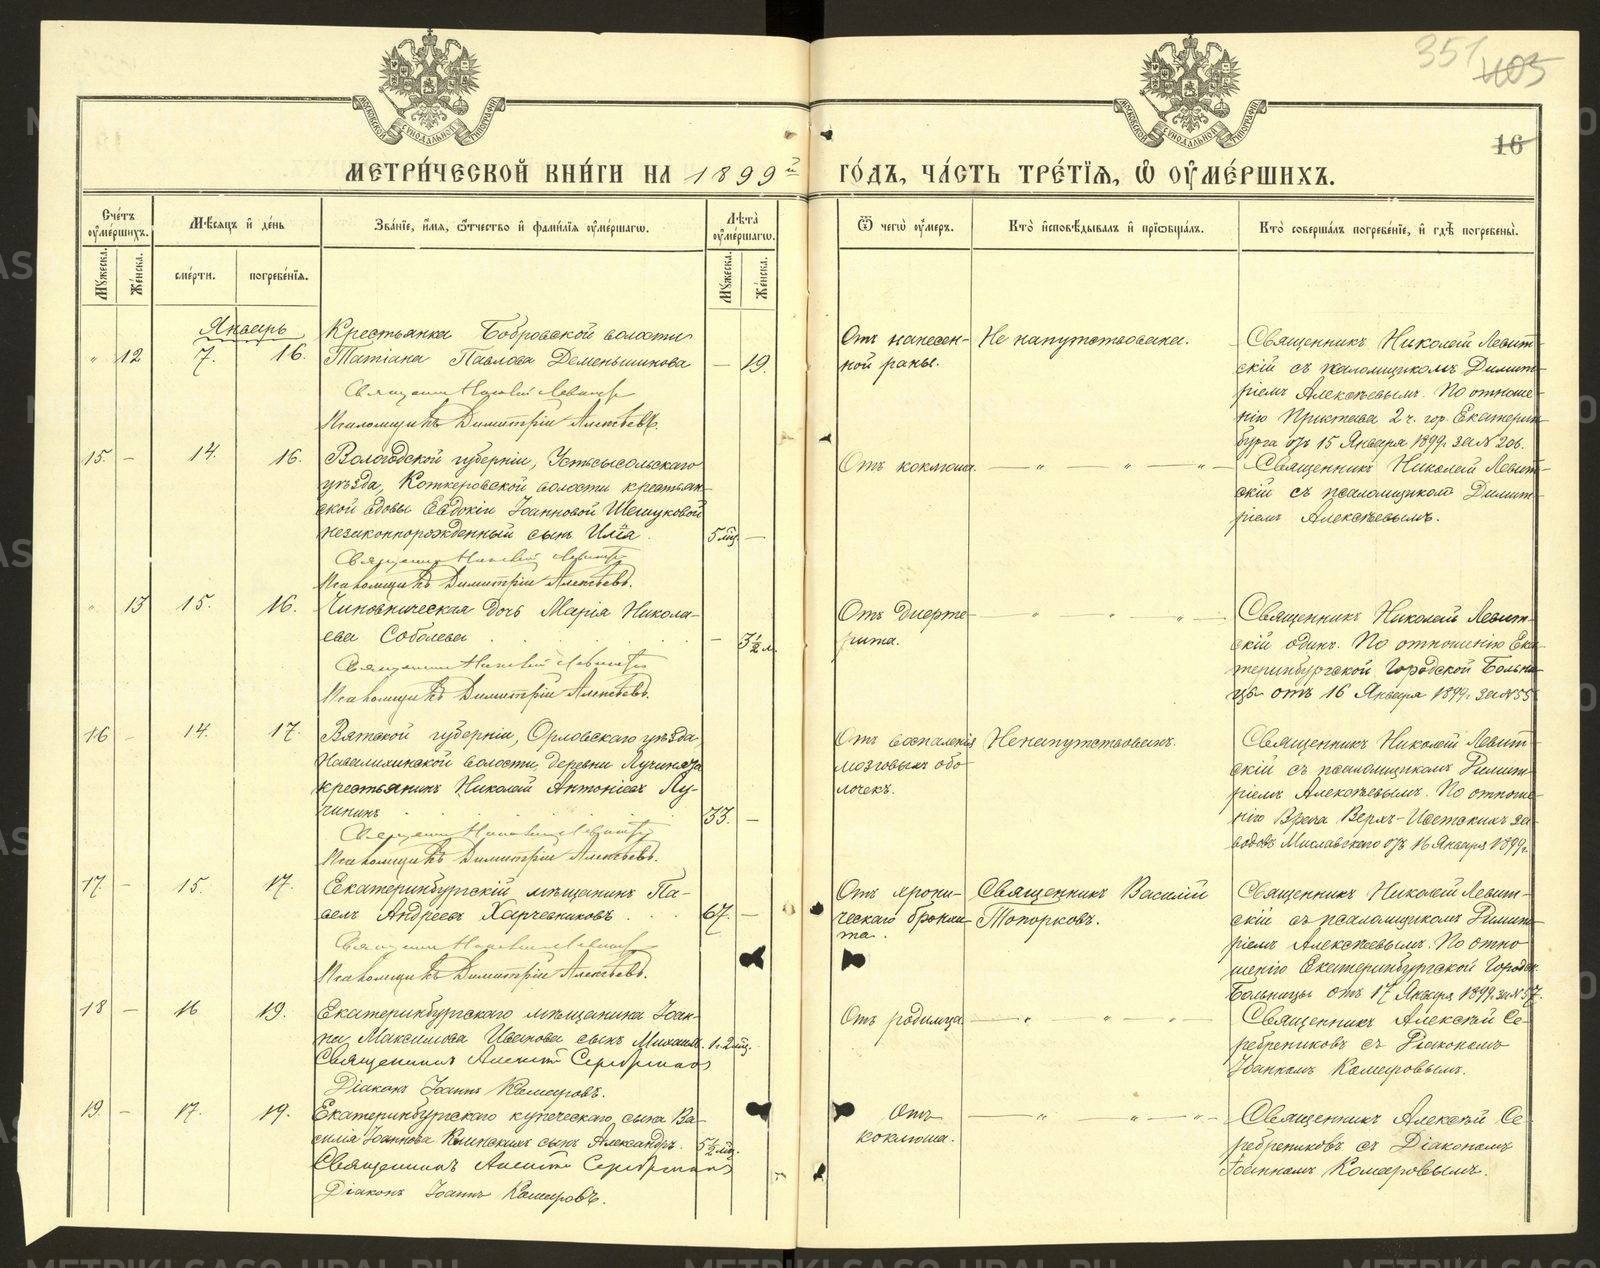 351 1105
16
МОСКОВСКОЙ СѴНОДАЛЬНОЙ ТИПОГРАФІИ
МОСКОВСКОЙ СѴНОДАЛЬНОЙ ТИПОГРАФІИ
МЕТРИ́ЧЕСКОЙ КНИ́ГИ НА 1899й ГО́ДЪ, ЧА́СТЬ ТРЕ́ТІѦ, Ѡ҆ ОУ҆МЕ́РШИХЪ.
Сче́тъ оу҆ме́ршихъ.
Мꙋ́жеска.
Же́нска.
Мѣ́сяцъ и҆ де́нь
сме́рти.
погребе́нїѧ.
Зва́нїе, и҆́мѧ, ѻ҆́тчество и҆ фами́лїѧ оу҆ме́ршагѡ.
Лѣ́та оу҆ме́ршагѡ.
Мꙋ́жеска.
Же́нска.
Ѿ чегѡ̀ оу҆́меръ.
Кто̀ и҆сповѣ́дывалъ и҆ прїѡбща́лъ.
Кто̀ соверша́лъ погребе́нїе, и҆ гдѣ̀ погребены̀.
Январь
" 12 7. 16.
Крестьянка Бобровской волости
Татіана Павлова Деменьшинова — 19.
Священникъ Николай Левитскій
Псаломщикъ Димитрій Алексѣевъ.
Отъ нанесен-
ной раны.
Не напутствована.
Священникъ Николай Левит-
скій съ псаломщикомъ Димит-
ріемъ Алексѣевымъ. По отноше-
нію Пристава 2 ч. гор. Екатерин-
бурга отъ 15 Января 1899 г. за № 206.
15. — 14. 16.
Вологодской губерніи, Устьсысольскаго
уѣзда, Кочкеровской волости крестьян-
ской вдовы Евдокіи Іоанновой
незаконнорожденный сынъ Илія. 5 мц. —
Священникъ Николай Левитскій
Псаломщикъ Димитрій Алексѣевъ.
Отъ коклюша. — " — " — " —
Священникъ Николай Левит-
скій съ псаломщикомъ Димит-
ріемъ Алексѣевымъ.
" 13 15. 16.
Чиновническая дочь Марія Никола-
ева Соболева — 3½ л.
Священникъ Николай Левитскій
Псаломщикъ Димитрій Алексѣевъ.
Отъ дифте-
рита. — " — " — " —
Священникъ Николай Левит-
скій одинъ. По отношенію Ека-
теринбургской Городской Больни-
цы отъ 16 Января 1899 г. за № 55
16 — 14. 17.
Вятской губерніи, Орловскаго уѣзда,
волости, деревни
крестьянинъ Николай Антоніевъ Лу-
чининъ 33. —
Священникъ Николай Левитскій
Псаломщикъ Димитрій Алексѣевъ.
Отъ воспаленія
мозговыхъ обо-
лочекъ.
Ненапутствованъ.
Священникъ Николай Левит-
скій съ псаломщикомъ Димит-
ріемъ Алексѣевымъ. По отноше-
нію Врача Верхъ-Исетскихъ за-
водовъ Миславскаго отъ 16 Января 1899 г.
17. — 15. 17.
Екатеринбургскій мѣщанинъ Па-
велъ Андреевъ Харчевниковъ 67. —
Священникъ Николай Левитскій
Псаломщикъ Димитрій Алексѣевъ.
Отъ хрони-
ческаго бронхи-
та.
Священникъ Василій
Топорковъ.
Священникъ Николай Левит-
скій съ псаломщикомъ Димит-
ріемъ Алексѣевымъ. По отно-
шенію Екатеринбургской Городск.
Больницы отъ 17 Января 1899 г. за № 57.
18 — 16 19.
Екатеринбургскаго мѣщанина Іоан-
на Максимова Иванова сынъ Михаилъ. 1 г. 2 мц.
Священникъ Алексій Серебрениковъ
Діаконъ Іоаннъ Комаровъ.
Отъ родимца. — " — " — " —
Священникъ Алексѣй Се-
ребрениковъ съ Діакономъ
Іоанномъ Комаровымъ.
19. — 17. 19.
Екатеринбургскаго купеческаго сына Ва-
силія Іоаннова Клинскихъ сынъ Александръ. 5½ мц.
Священникъ Алексій Серебрениковъ
Діаконъ Іоаннъ Комаровъ.
Отъ
коклюша. — " — " — " —
Священникъ Алексѣй Се-
ребрениковъ съ Діакономъ
Іоанномъ Комаровымъ.
METRIKI.GASO-URAL.RU